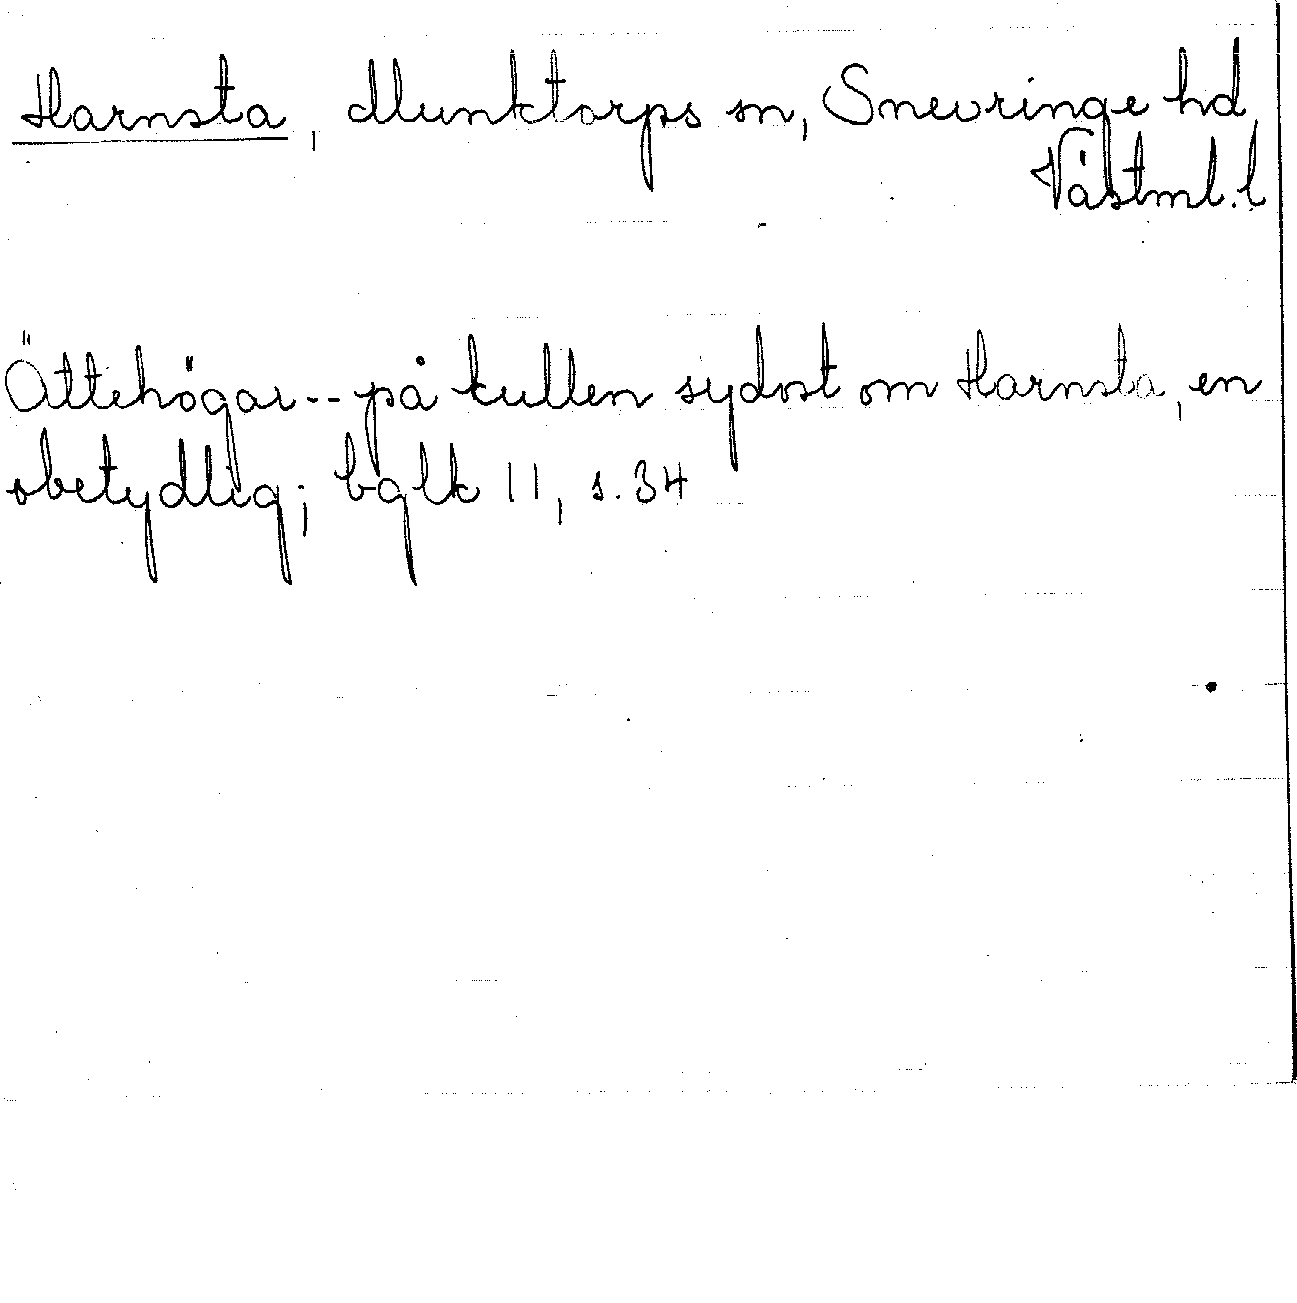 Harnsta, Munktorps sn, Snevringe hd
Västml. l
Ättehögar -- på kullen sydost om Harnsta, en
obetydlig; bglk 11, s. 34